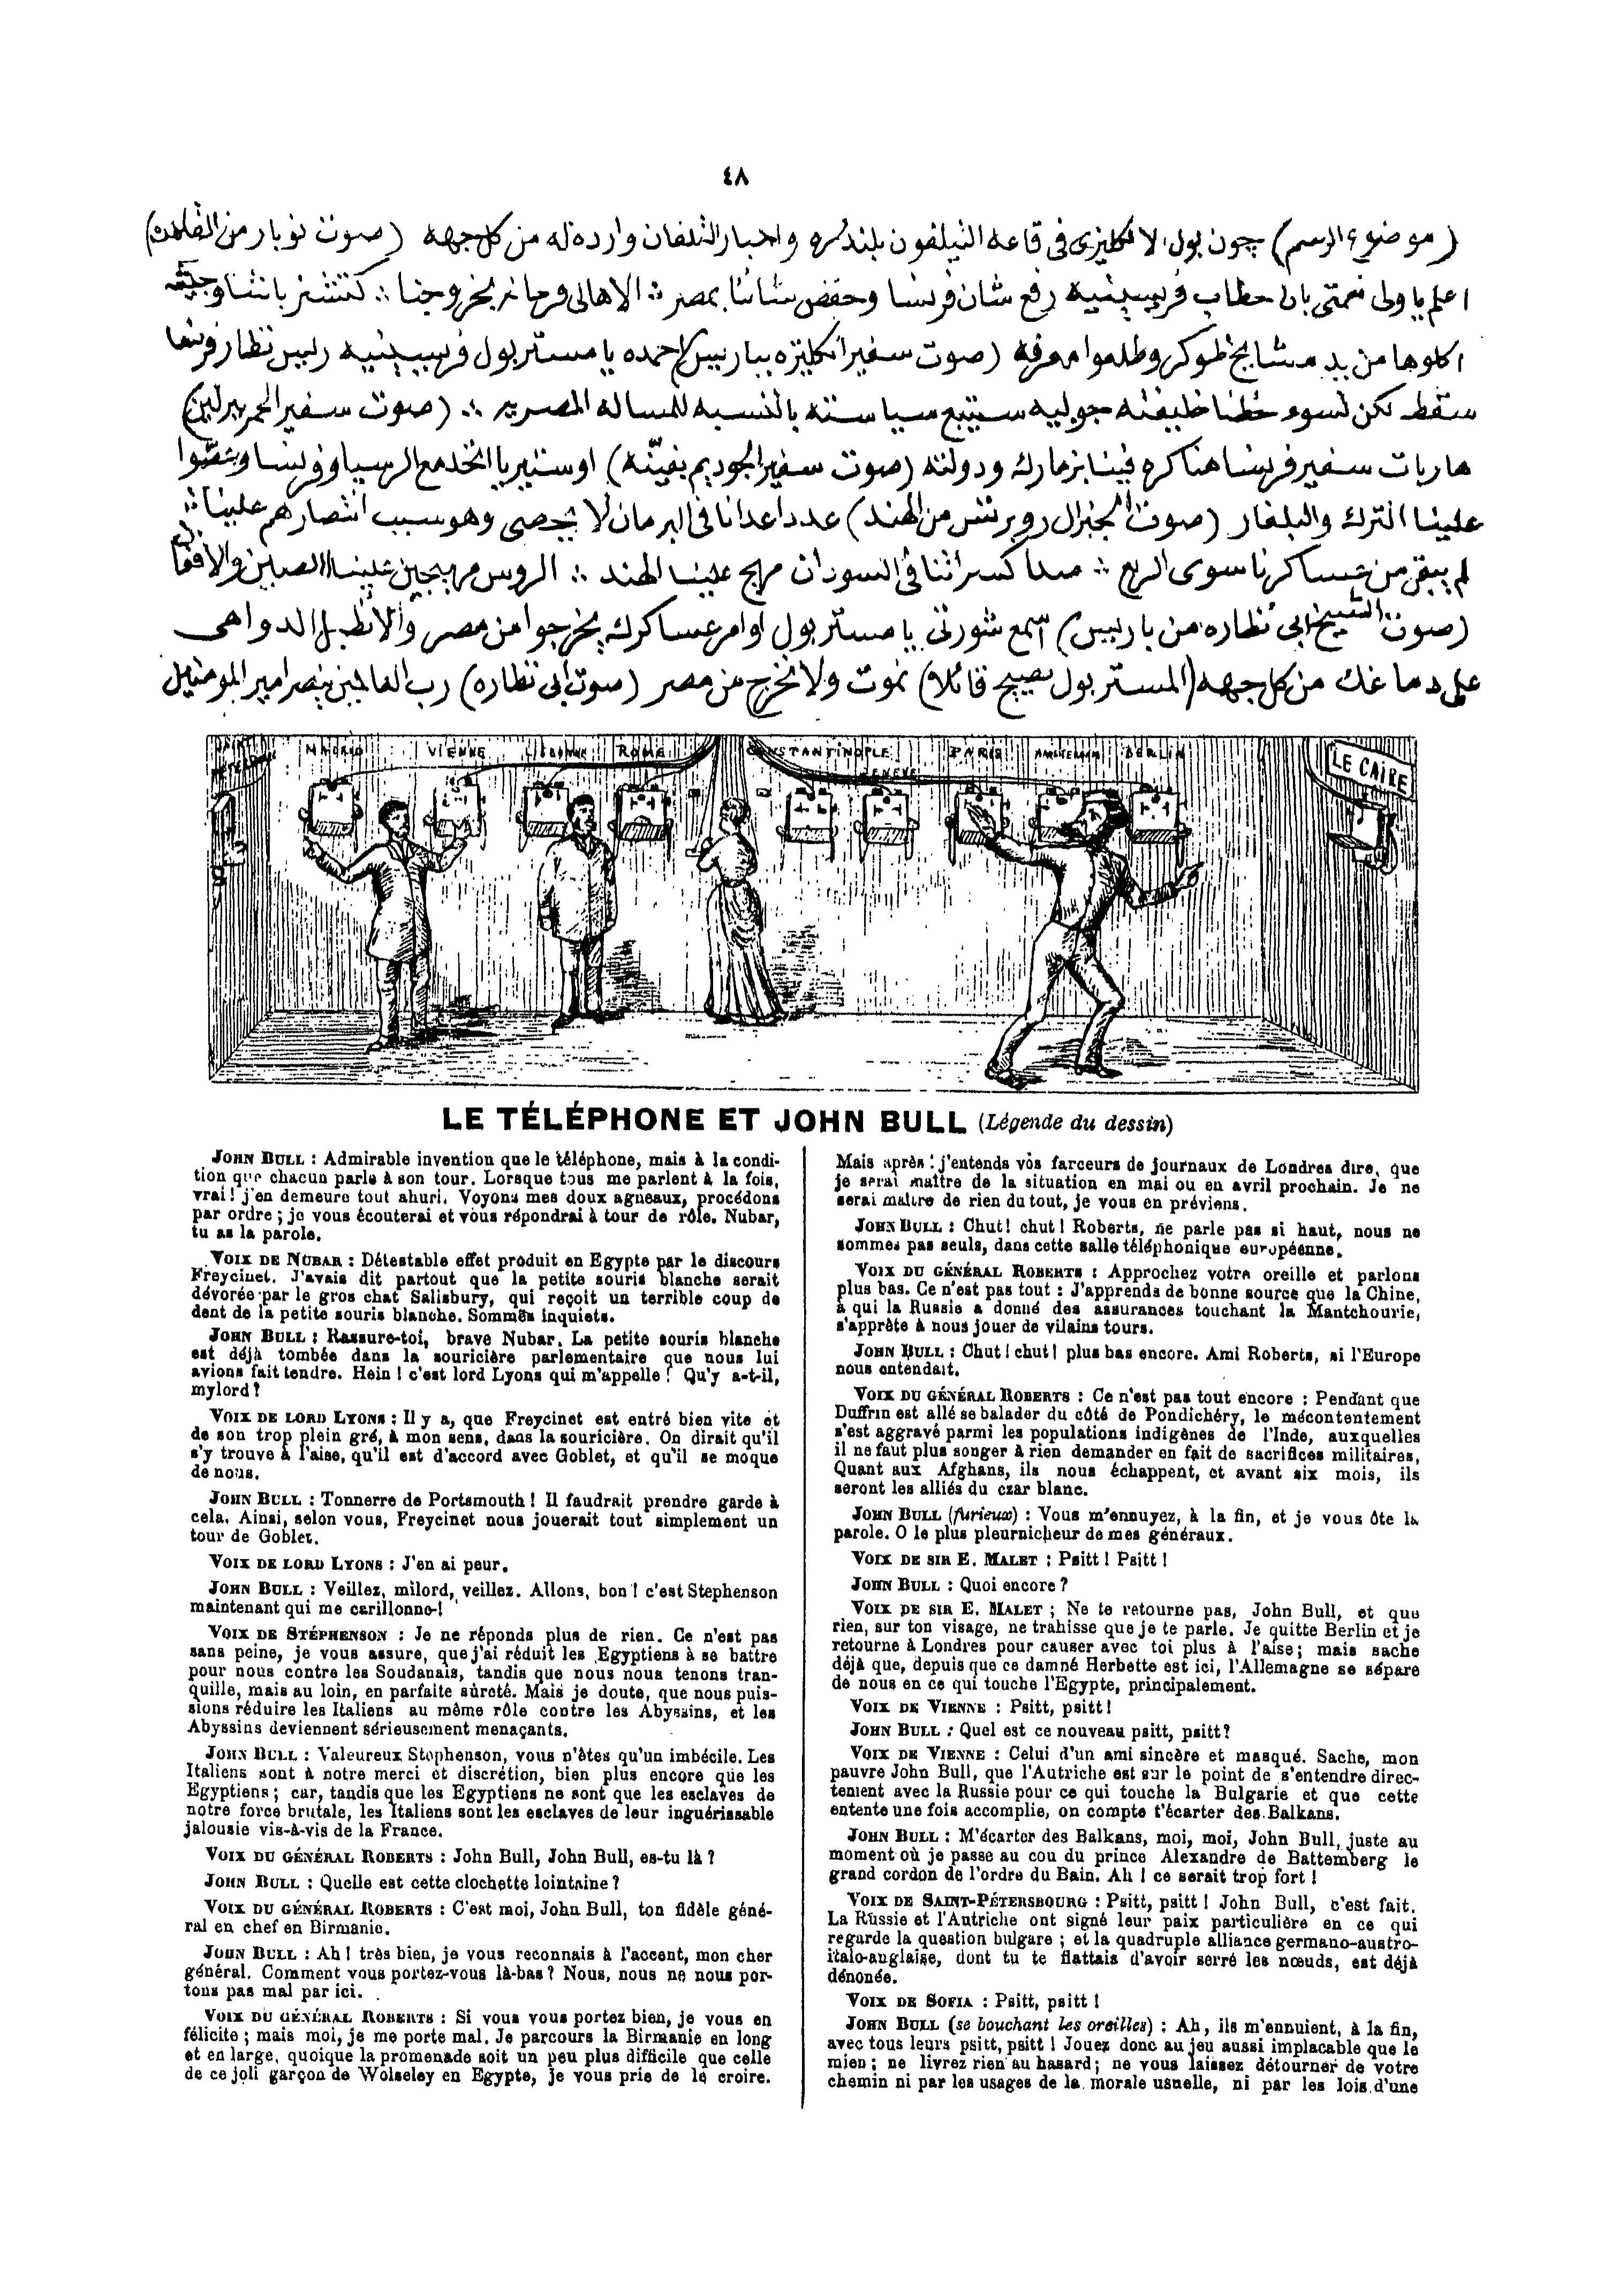 ٤٨
(موضوع الرسم) چون بول الانكليزى فى قاعه التيلفون بلندره واخبار التلفان وارده له من كل جهه (صوت نوبار من القاهره)
اعلم يا ولى نعمتى بان خطاب فريسينيه رفع شان فرنسا وخفض شاننا بمصر الاهالى فرحانه بخروجنا
(صوت سفير انكلتره بباريس) يا مستر بول فريسينيه رئيس نظار فرنسا
سقط لكن لسوء حظنا خليفته جوبليه سيتبع سياسته بالنسبه للمساله المصريه
علينا الترك والبلغار (صوت الجنرال روبرتس من الهند) عدد اعدانا فى البرمان لا يحصى وهو سبب انتصارهم علينا
لم يبقى من عساكرنا سوى الربع صدا كسراتنا فى السودان مهيج علينا الهند الروس مهيجين علينا الصين والافغان
(صوت الشيخ ابى نظاره من باريس) اسمع شورتى يا مستر بول اوامر عساكرك يخرجوا من مصر والا تطبل الدواهى
على دماغك من كل جهه (المستر بول يصيح قائلا) نموت ولا نخرج من مصر (صوت ابى نظاره) رب العالمين ينصر امير المومنين
SAINT PETERSB
MADRID
VIENNE
LISBONNE
ROME
CONSTANTINOPLE
GENÈVE
PARIS
AMSTERDAM
BERLIN
LE CAIRE
LE TÉLÉPHONE ET JOHN BULL (Légende du dessin)
JOHN BULL : Admirable invention que le téléphone, mais à la condi-
tion que chacun parle à son tour. Lorsque tous me parlent à la fois,
vrai! j'en demeure tout ahuri. Voyons mes doux agneaux, procédons
par ordre ; je vous écouterai et vous répondrai à tour de rôle. Nubar,
tu as la parole.
VOIX DE NUBAR : Détestable effet produit en Egypte par le discours
Freycinet. J'avais dit partout que la petite souris blanche serait
dévorée par le gros chat Salisbury, qui reçoit un terrible coup de
dent de la petite souris blanche. Sommes inquiets.
JOHN BULL : Rassure-toi, brave Nubar. La petite souris blanche
est déjà tombée dans la souricière parlementaire que nous lui
avions fait tendre. Hein ! c'est lord Lyons qui m'appelle ! Qu'y a-t-il,
mylord ?
VOIX DE LORD LYONS : Il y a, que Freycinet est entré bien vite et
de son trop plein gré, à mon sens, dans la souricière. On dirait qu'il
s'y trouve à l'aise, qu'il est d'accord avec Goblet, et qu'il se moque
de nous.
JOHN BULL : Tonnerre de Portsmouth ! Il faudrait prendre garde à
cela. Ainsi, selon vous, Freycinet nous jouerait tout simplement un
tour de Goblet.
VOIX DE LORD LYONS : J'en ai peur.
JOHN BULL : Veillez, milord, veillez. Allons, bon ! c'est Stephenson
maintenant qui me carillonne !
VOIX DE STÉPHENSON : Je ne réponds plus de rien. Ce n'est pas
sans peine, je vous assure, que j'ai réduit les Egyptiens à se battre
pour nous contre les Soudanais, tandis que nous nous tenons tran-
quille, mais au loin, en parfaite sûreté. Mais je doute, que nous puis-
sions réduire les Italiens au même rôle contre les Abyssins, et les
Abyssins deviennent sérieusement menaçants.
JOHN BULL : Valeureux Stephenson, vous n'êtes qu'un imbécile. Les
Italiens sont à notre merci et discrétion, bien plus encore que les
Egyptiens ; car, tandis que les Egyptiens ne sont que les esclaves de
notre force brutale, les Italiens sont les esclaves de leur inguérissable
jalousie vis-à-vis de la France.
VOIX DU GÉNÉRAL ROBERTS : John Bull, John Bull, es-tu là ?
JOHN BULL : Quelle est cette clochette lointaine ?
VOIX DU GÉNÉRAL ROBERTS : C'est moi, John Bull, ton fidèle géné-
ral en chef en Birmanie.
JOHN BULL : Ah ! très bien, je vous reconnais à l'accent, mon cher
général. Comment vous portez-vous là-bas ? Nous, nous ne nous por-
tons pas mal par ici.
VOIX DU GÉNÉRAL ROBERTS : Si vous vous portez bien, je vous en
félicite ; mais moi, je me porte mal. Je parcours la Birmanie en long
et en large, quoique la promenade soit un peu plus difficile que celle
de ce joli garçon de Wolseley en Egypte, je vous prie de le croire.
Mais après ! j'entends vos farceurs de journaux de Londres dire, que
je serai maître de la situation en mai ou en avril prochain. Je ne
serai maître de rien du tout, je vous en préviens.
JOHN BULL : Chut ! chut ! Roberts, ne parle pas si haut, nous ne
sommes pas seuls, dans cette salle téléphonique européenne.
VOIX DU GÉNÉRAL ROBERTS : Approchez votre oreille et parlons
plus bas. Ce n'est pas tout : J'apprends de bonne source que la Chine,
à qui la Russie a donné des assurances touchant la Mantchourie,
s'apprête à nous jouer de vilains tours.
JOHN BULL : Chut ! chut ! plus bas encore. Ami Roberts, si l'Europe
nous entendait.
VOIX DU GÉNÉRAL ROBERTS : Ce n'est pas tout encore : Pendant que
Duffrin est allé se balader du côté de Pondichéry, le mécontentement
s'est aggravé parmi les populations indigènes de l'Inde, auxquelles
il ne faut plus songer à rien demander en fait de sacrifices militaires,
Quant aux Afghans, ils nous échappent, et avant six mois, ils
seront les alliés du czar blanc.
JOHN BULL (furieux) : Vous m'ennuyez, à la fin, et je vous ôte la
parole. O le plus pleurnicheur de mes généraux.
VOIX DE SIR E. MALET : Psitt ! Psitt !
JOHN BULL : Quoi encore ?
VOIX DE SIR E. MALET ; Ne te retourne pas, John Bull, et que
rien, sur ton visage, ne trahisse que je te parle. Je quitte Berlin et je
retourne à Londres pour causer avec toi plus à l'aise ; mais sache
déjà que, depuis que ce damné Herbette est ici, l'Allemagne se sépare
de nous en ce qui touche l'Egypte, principalement.
VOIX DE VIENNE : Psitt, psitt !
JOHN BULL : Quel est ce nouveau psitt, psitt ?
VOIX DE VIENNE : Celui d'un ami sincère et masqué. Sache, mon
pauvre John Bull, que l'Autriche est sur le point de s'entendre direc-
tement avec la Russie pour ce qui touche la Bulgarie et que cette
entente une fois accomplie, on compte t'écarter des Balkans.
JOHN BULL : M'écarter des Balkans, moi, moi, John Bull, juste au
moment où je passe au cou du prince Alexandre de Battemberg le
grand cordon de l'ordre du Bain. Ah ! ce serait trop fort !
VOIX DE SAINT-PÉTERSBOURG : Psitt, psitt ! John Bull, c'est fait.
La Russie et l'Autriche ont signé leur paix particulière en ce qui
regarde la question bulgare ; et la quadruple alliance germano-austro-
italo-anglaise, dont tu te flattais d'avoir serré les nœuds, est déjà
dénonée.
VOIX DE SOFIA : Psitt, psitt !
JOHN BULL (se bouchant les oreilles) : Ah, ils m'ennuient, à la fin,
avec tous leurs psitt, psitt ! Jouez donc au jeu aussi implacable que le
mien ; ne livrez rien au hasard ; ne vous laissez détourner de votre
chemin ni par les usages de la morale usuelle, ni par les lois d'une